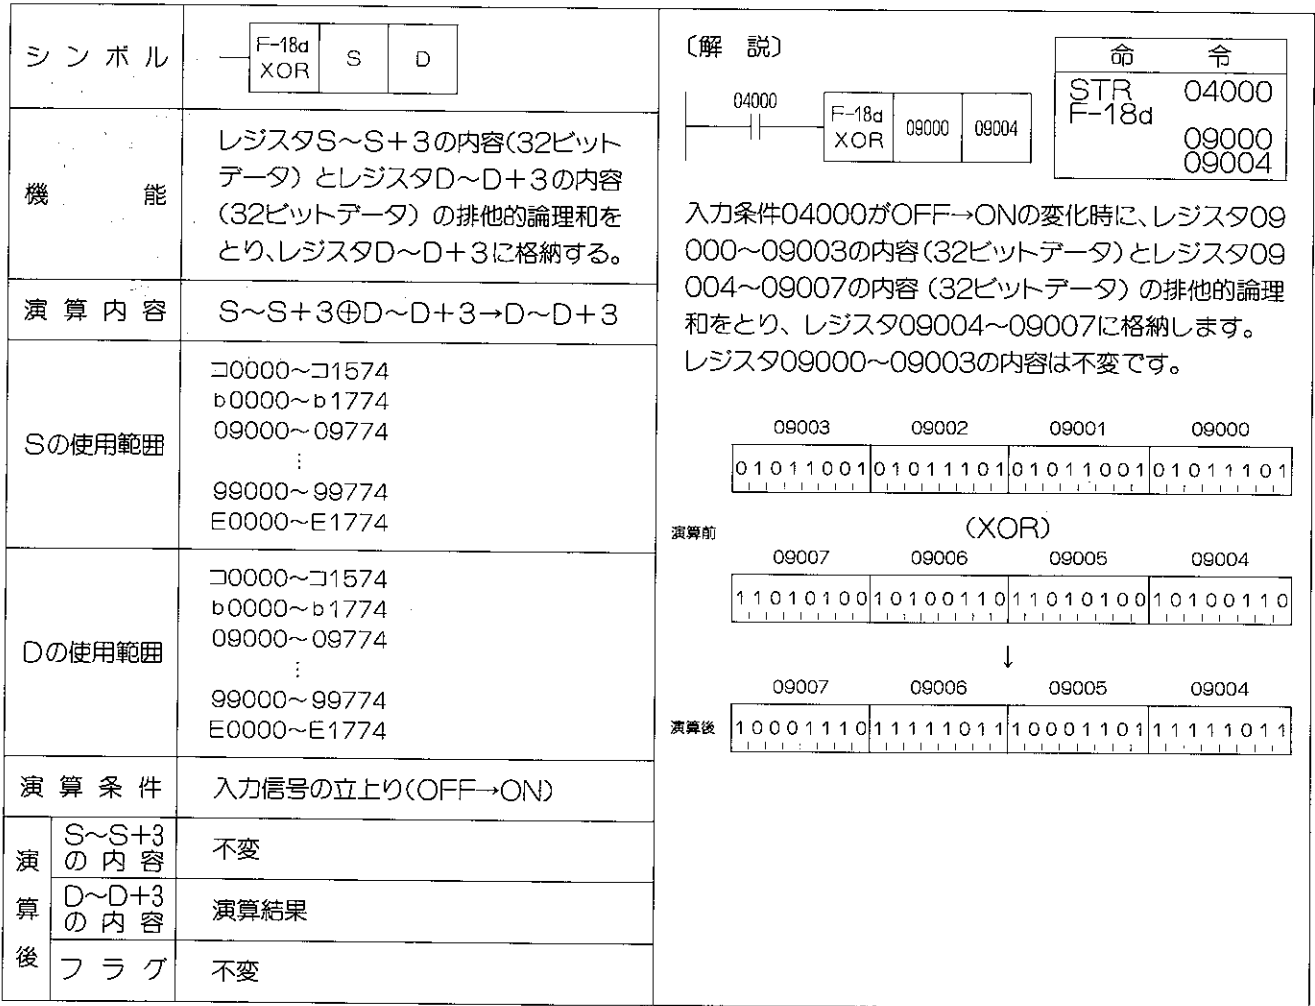 シンボル
F-18d
XOR
S
D
機能
レジスタS～S＋3の内容(32ビット
データ) とレジスタD～D＋3の内容
(32ビットデータ) の排他的論理和を
とり、レジスタD～D＋3に格納する。
演算内容
S～S＋3⊕D～D＋3→D～D＋3
Sの使用範囲
コ0000～コ1574
b0000～b1774
09000～09774
⋮
99000～99774
E0000～E1774
Dの使用範囲
コ0000～コ1574
b0000～b1774
09000～09774
⋮
99000～99774
E0000～E1774
演算条件
入力信号の立上り(OFF→ON)
演算後
S～S+3
の内容
不変
D～D+3
の内容
演算結果
フラグ
不変
〔解 説〕
04000
F-18d
XOR
09000
09004
命令
STR 04000
F-18d
09000
09004
入力条件04000がOFF→ONの変化時に、レジスタ09
000～09003の内容(32ビットデータ)とレジスタ09
004～09007の内容 (32ビットデータ) の排他的論理
和をとり、レジスタ09004～09007に格納します。
レジスタ09000～09003の内容は不変です。
09003 09002 09001 09000
01011001 01011101 01011001 01011101
演算前
(XOR)
09007 09006 09005 09004
11010100 10100110 11010100 10100110
↓
09007 09006 09005 09004
演算後
10001110 11111011 10001101 11111011